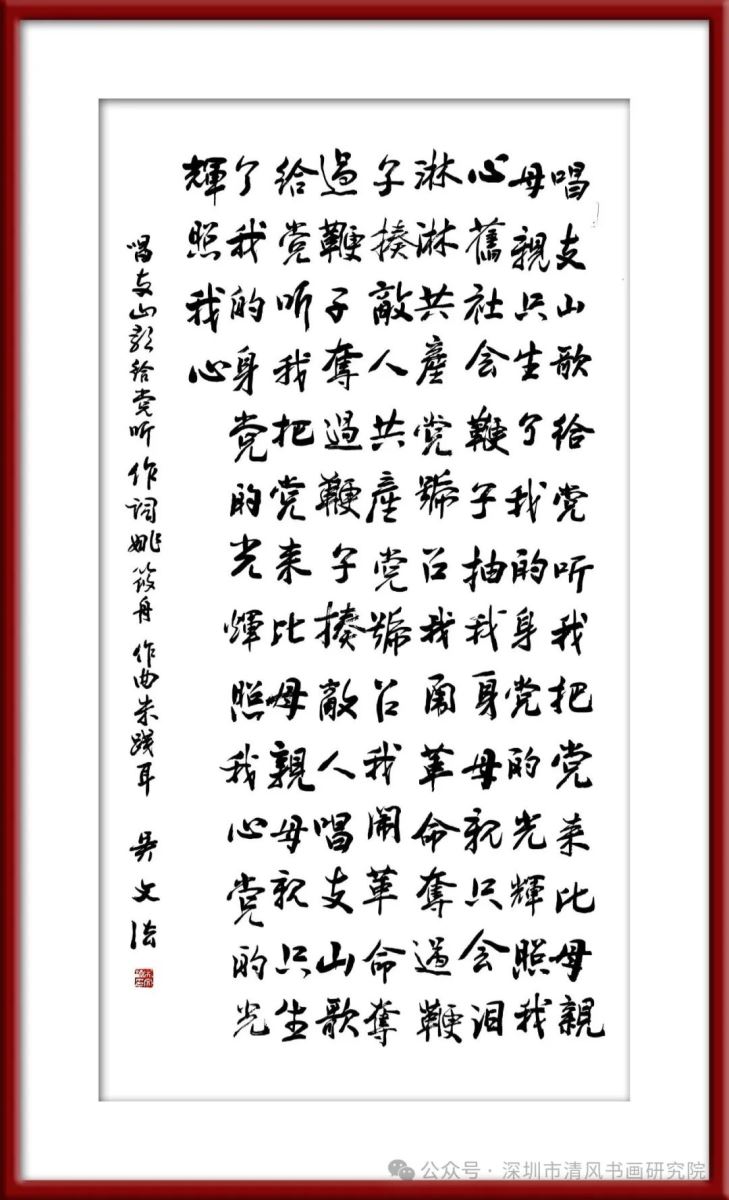 唱支山歌给党听我把党来比母親
母親只生了我的身党的光輝照我
心舊社会鞭子抽我身母親只会泪
淋淋共產党號召我闹革命奪過鞭
子揍敵人共產党號召我鬧革命奪
過鞭子奪過鞭子揍敵人唱支山歌
给党听我把党来比母親母親只生
了我的身党的光煇照我心党的光
輝照我心
唱支山歌给党听 作词姚筱舟 作曲朱践耳 吴文法
公众号·深圳市清风书画研究院